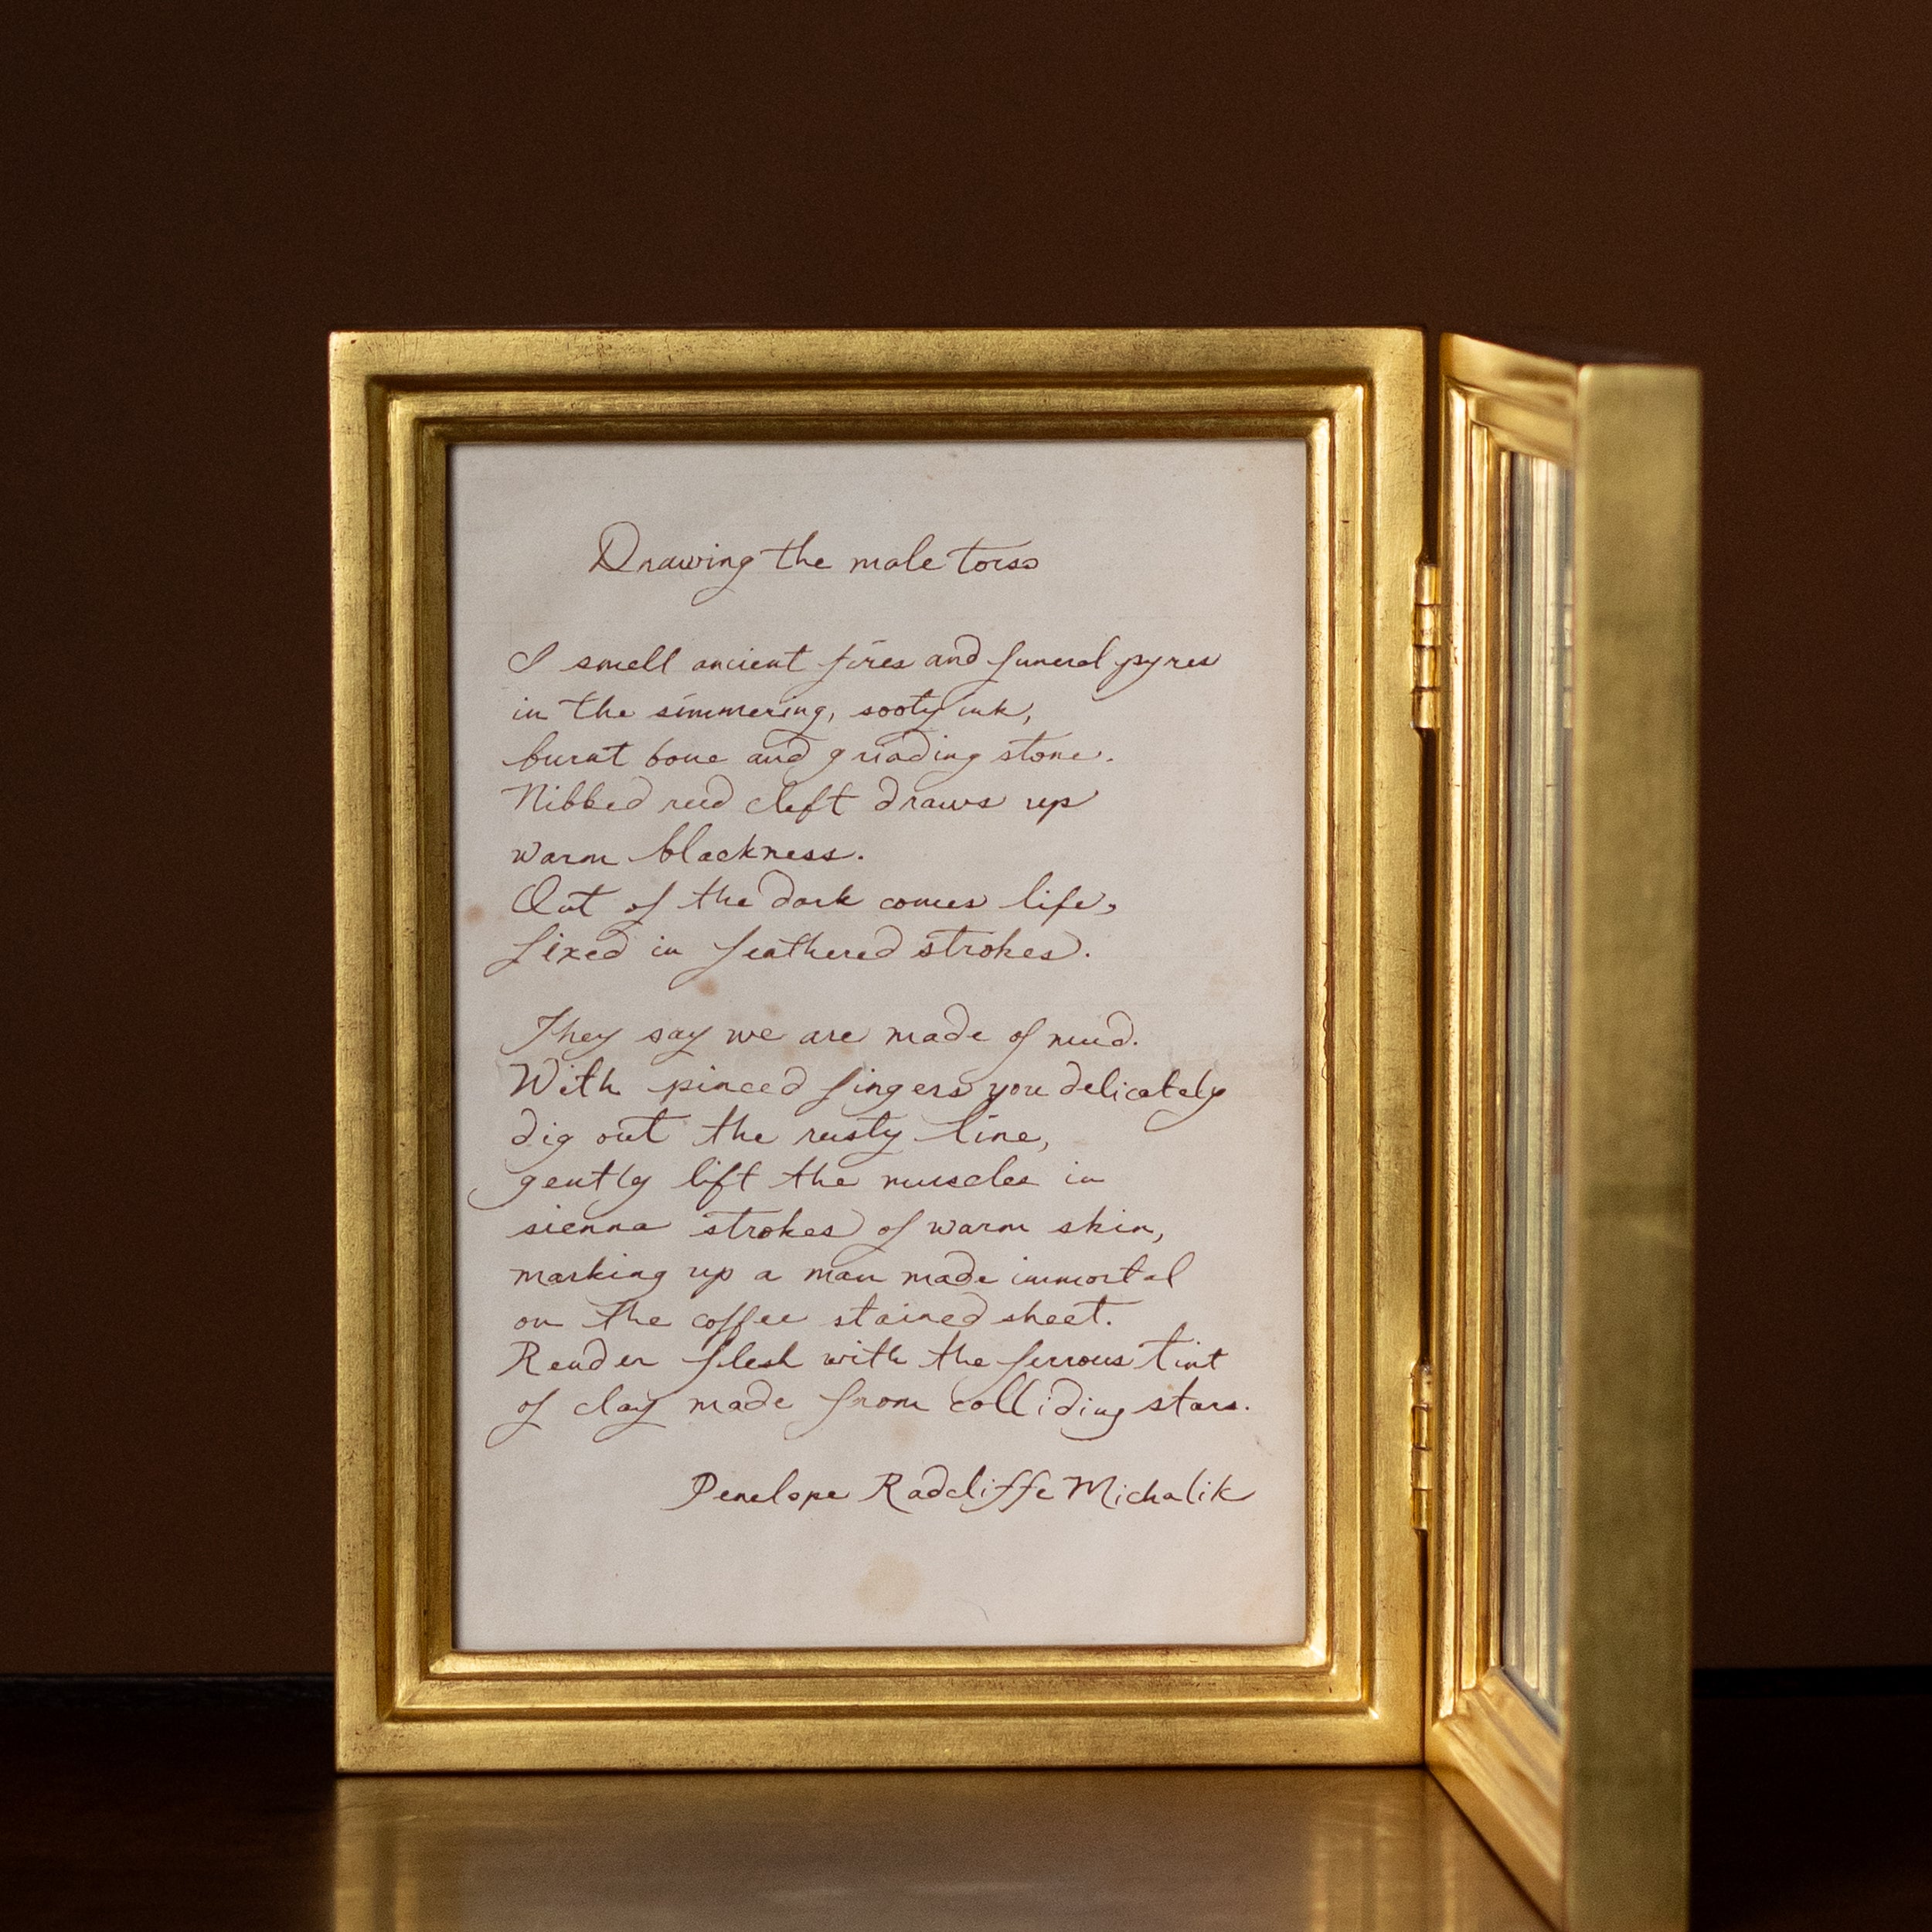 Drawing the male torso
I smell ancient fires and funeral pyres
in the simmering, sooty ink,
burnt bone and grinding stone.
Nibbed reed cleft draws up
warm blackness.
Out of the dark comes life,
fixed in feathered strokes.
They say we are made of mud.
With pinced fingers you delicately
dig out the rusty line,
gently lift the muscles in
sienna strokes of warm skin,
marking up a man made immortal
on the coffee stained sheet.
Render flesh with the ferrous tint
of clay made from colliding stars.
Penelope Radcliffe Michalik